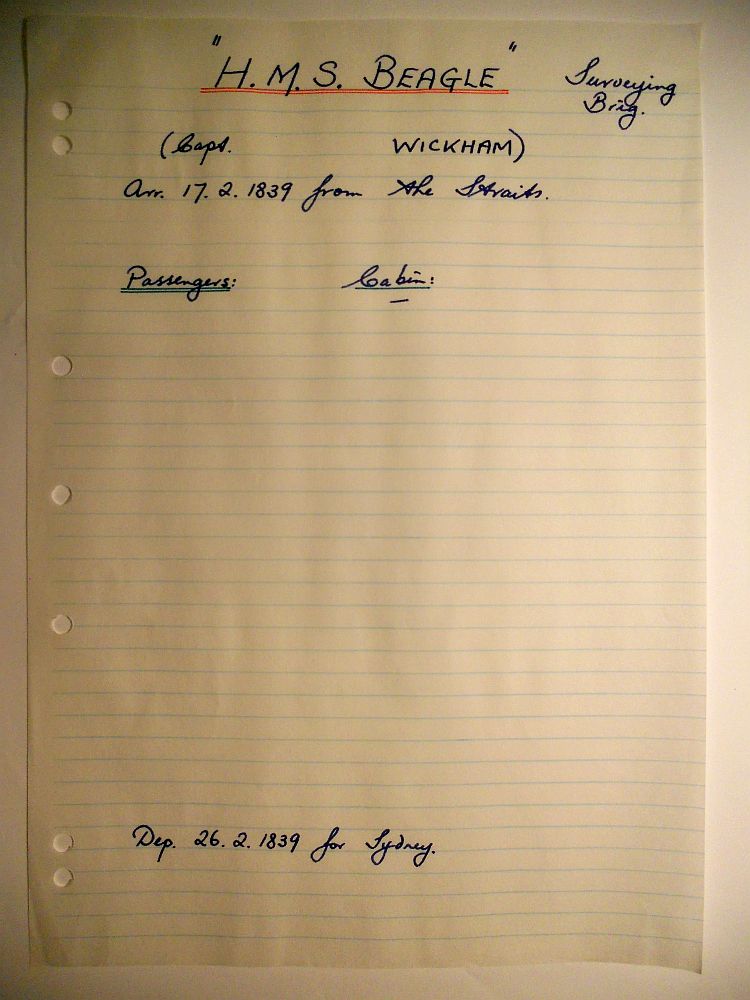 "H. M. S. BEAGLE" Surveying
Brig.
(Capt. WICKHAM)
Arr. 17. 2. 1839 from the Straits.
Passengers: Cabin:
—
Dep. 26. 2. 1839 for Sydney.